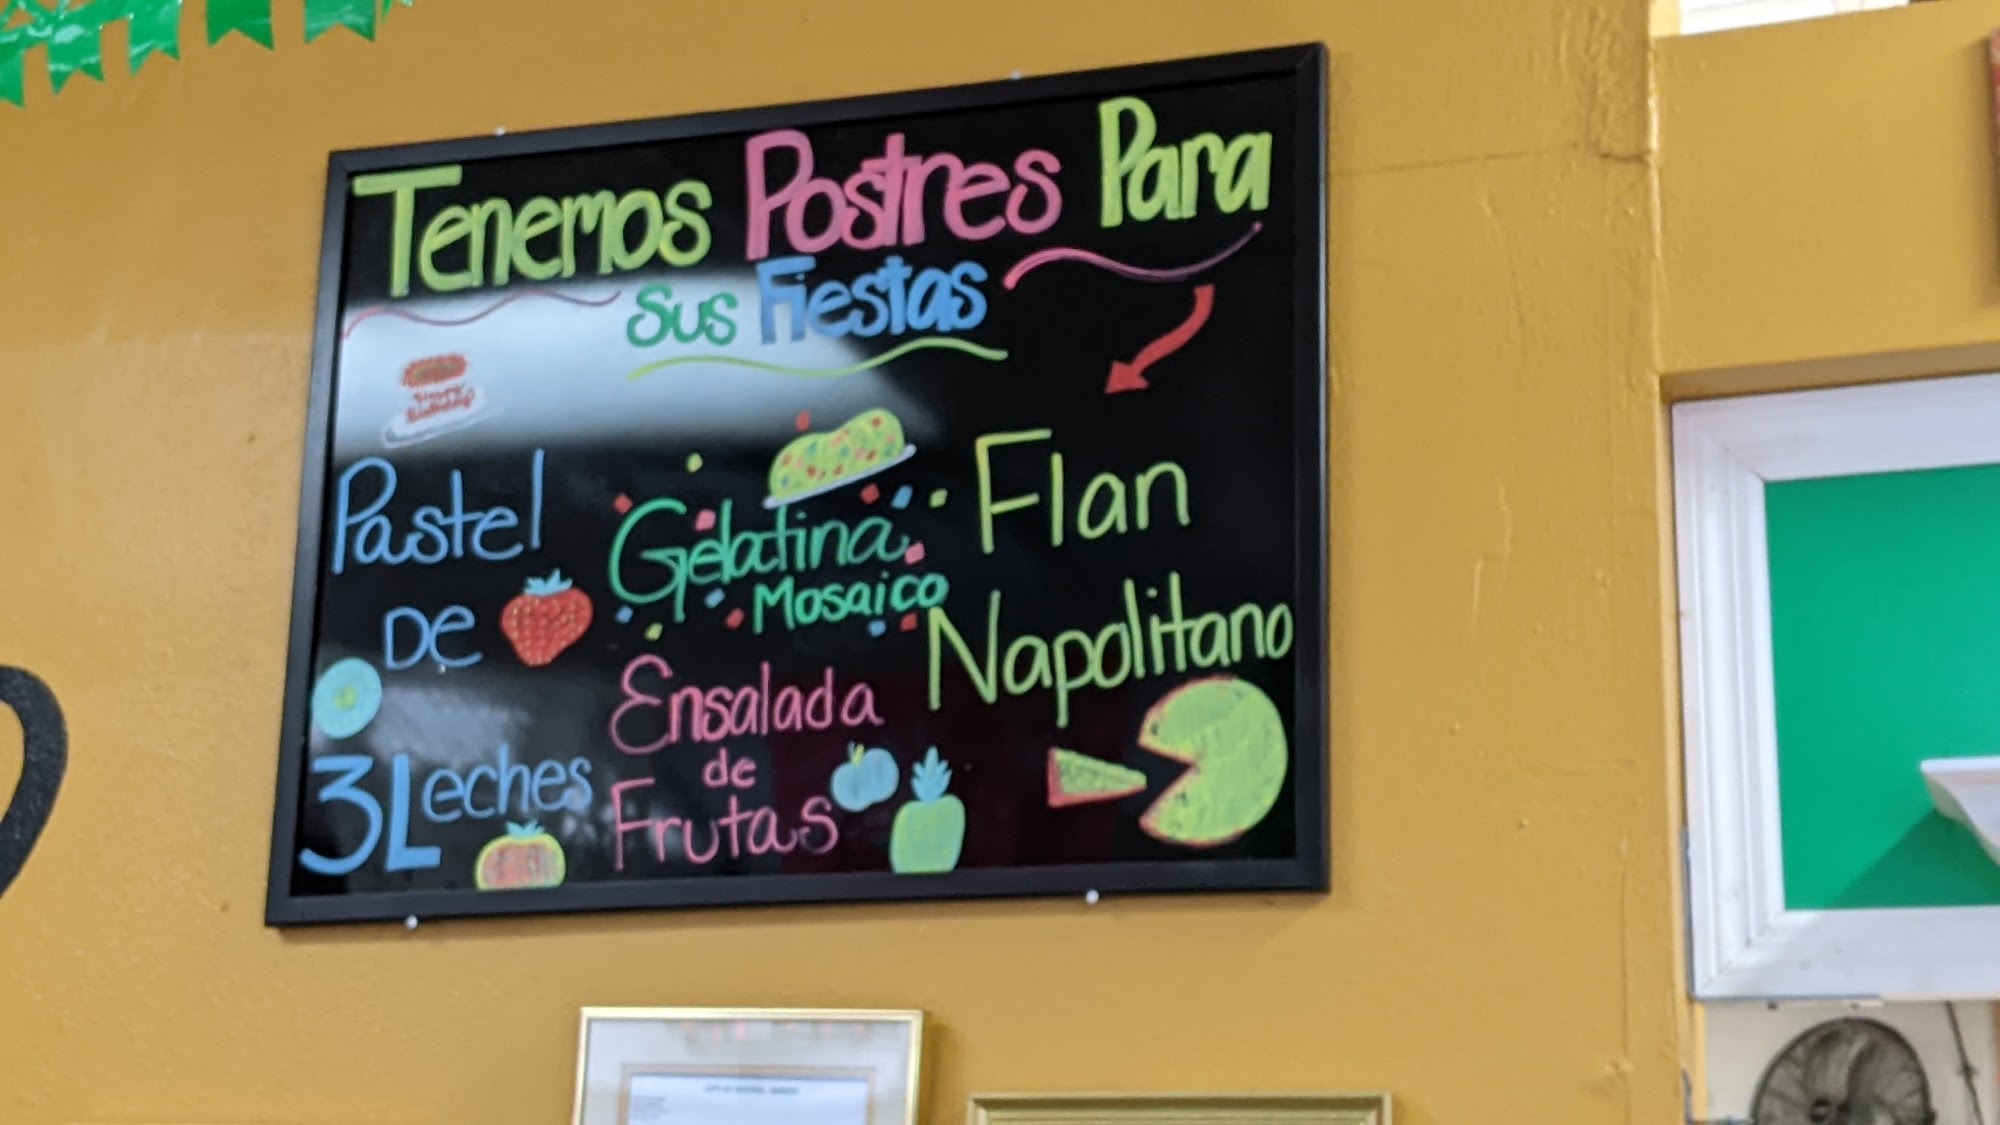 Tenemos Postres Para
Sus Fiestas
Happy
Birthday
Pastel
De
3 Leches
Gelatina
Mosaico
Ensalada
de
Frutas
Flan
Napolitano